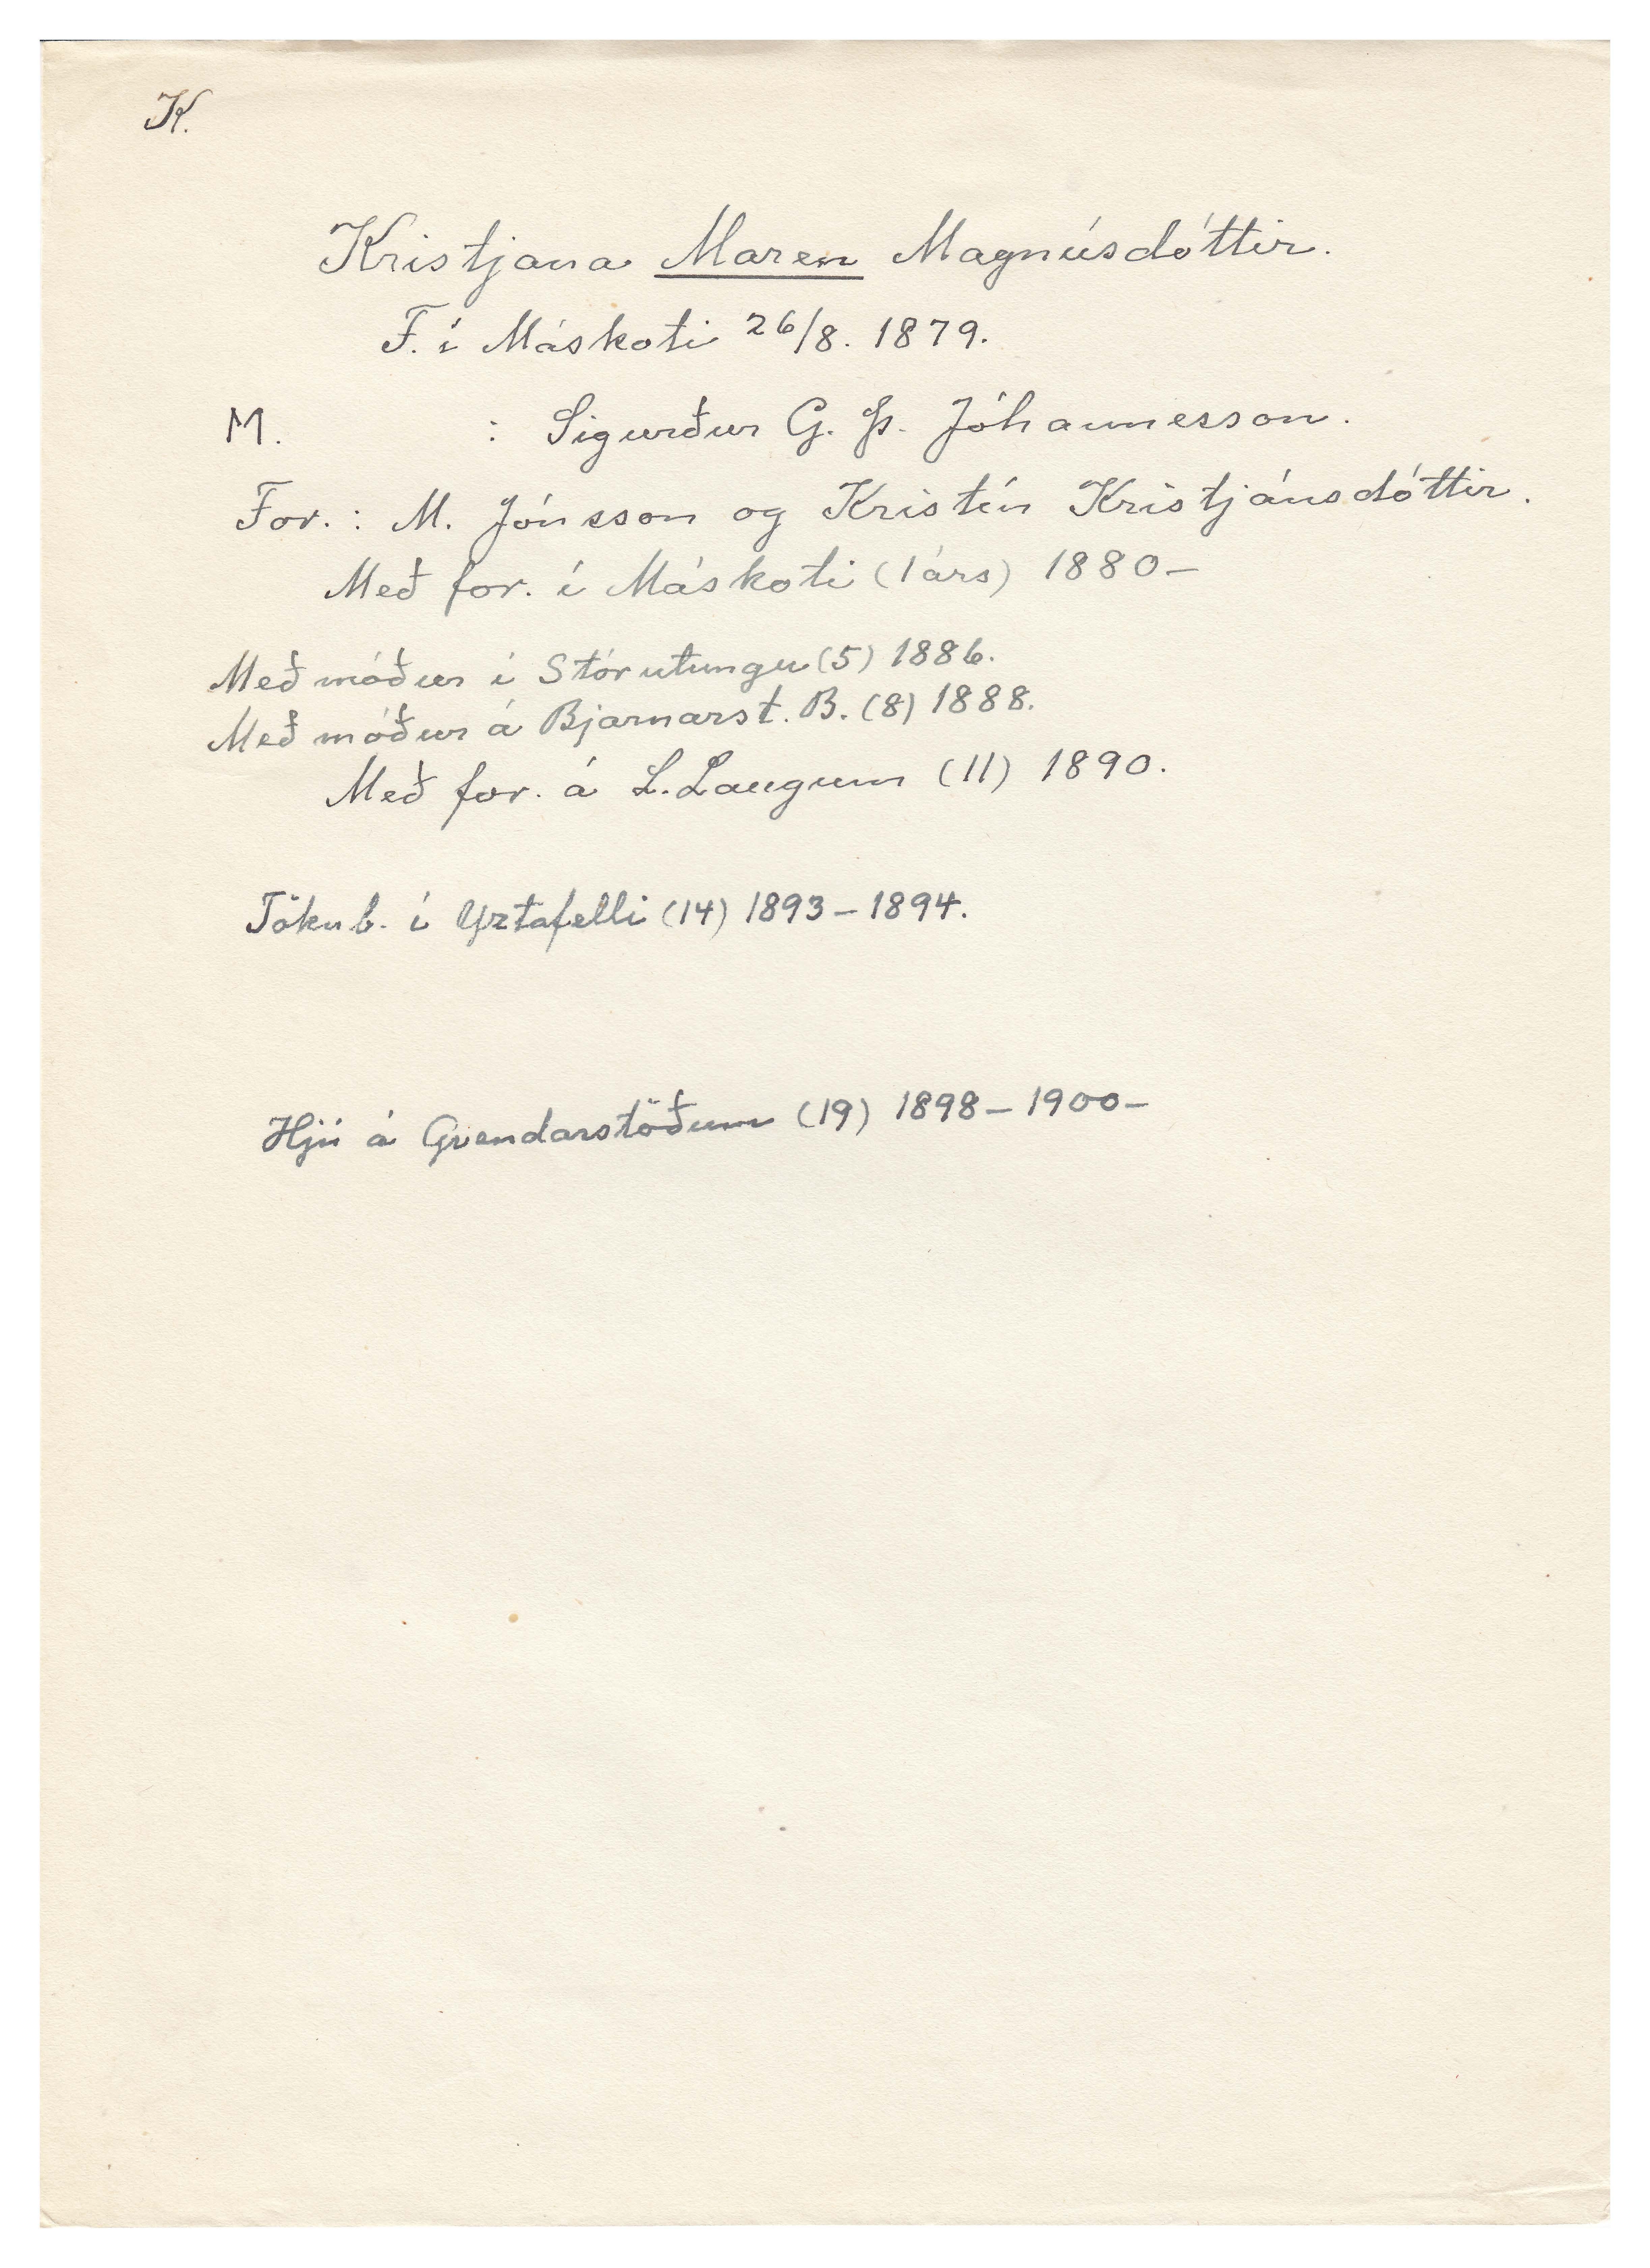 K.
Kristjana Maren Magnúsdóttir.
F. í Máskoti 26/8. 1879.
M. : Sigurður G. Þ. Jóhannesson.
For. : M. Jónsson og Kristín Kristjánsdóttir.
Með for. í Máskoti (1 árs) 1880-
Með móður í Stórutungu (5) 1886.
Með móður á Bjarnarst. B. (8) 1888.
Með for. á L. Laugum (11) 1890.
Tökub. í Yztafelli (14) 1893-1894.
Hjú á Gvendarstöðum (19) 1898-1900-